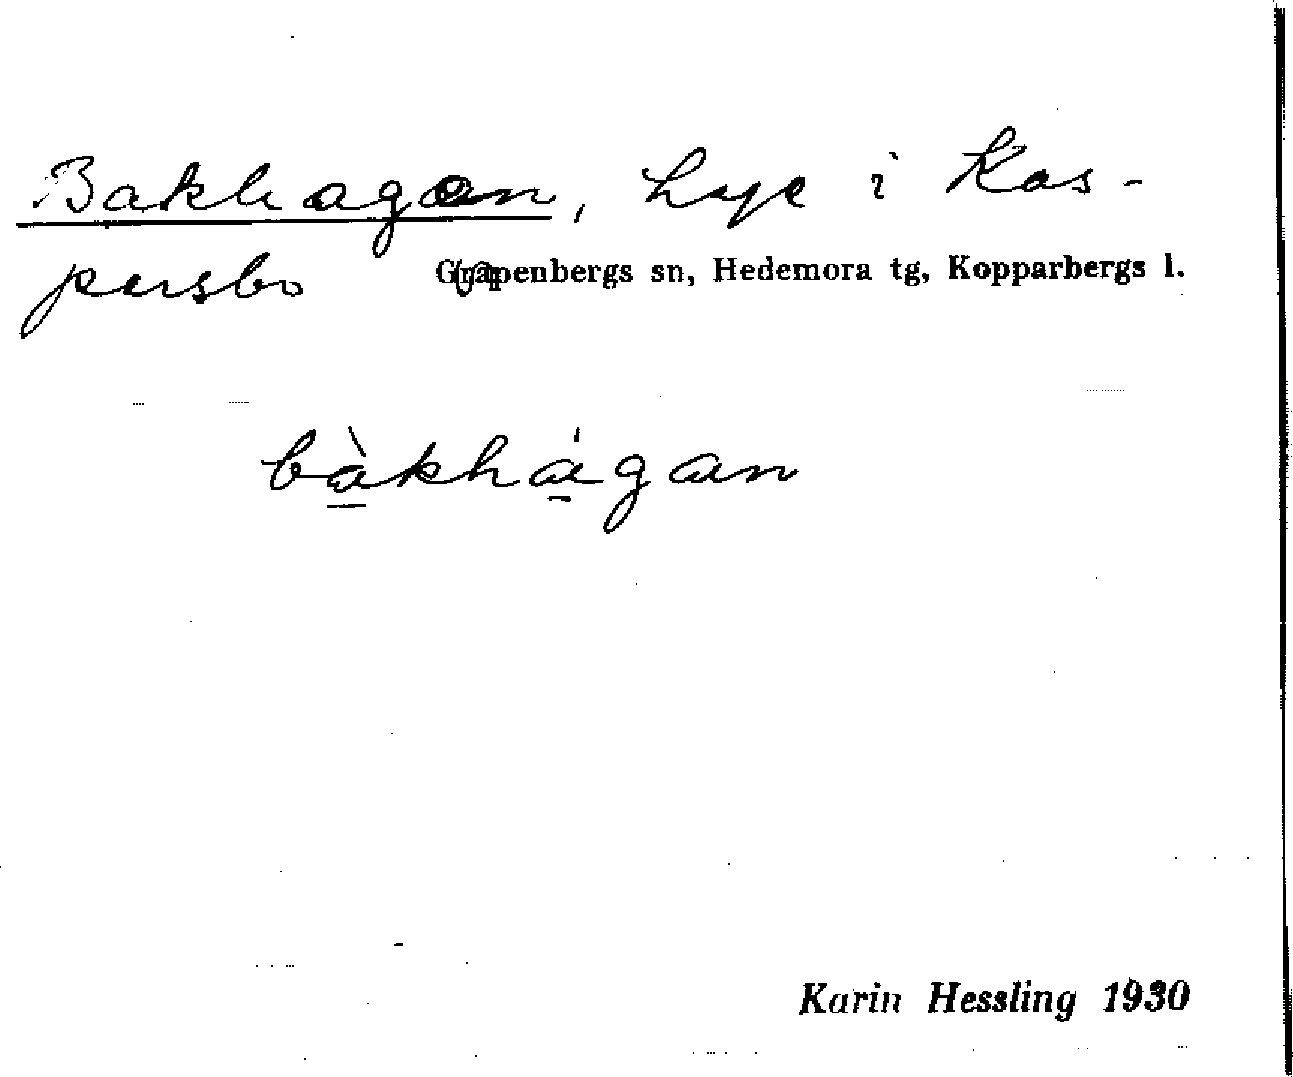 Bakhagan, hage i Kas-
persbo Grapenbergs sn, Hedemora tg, Kopparbergs l.
bàkhágan
Karin Hessling 1930